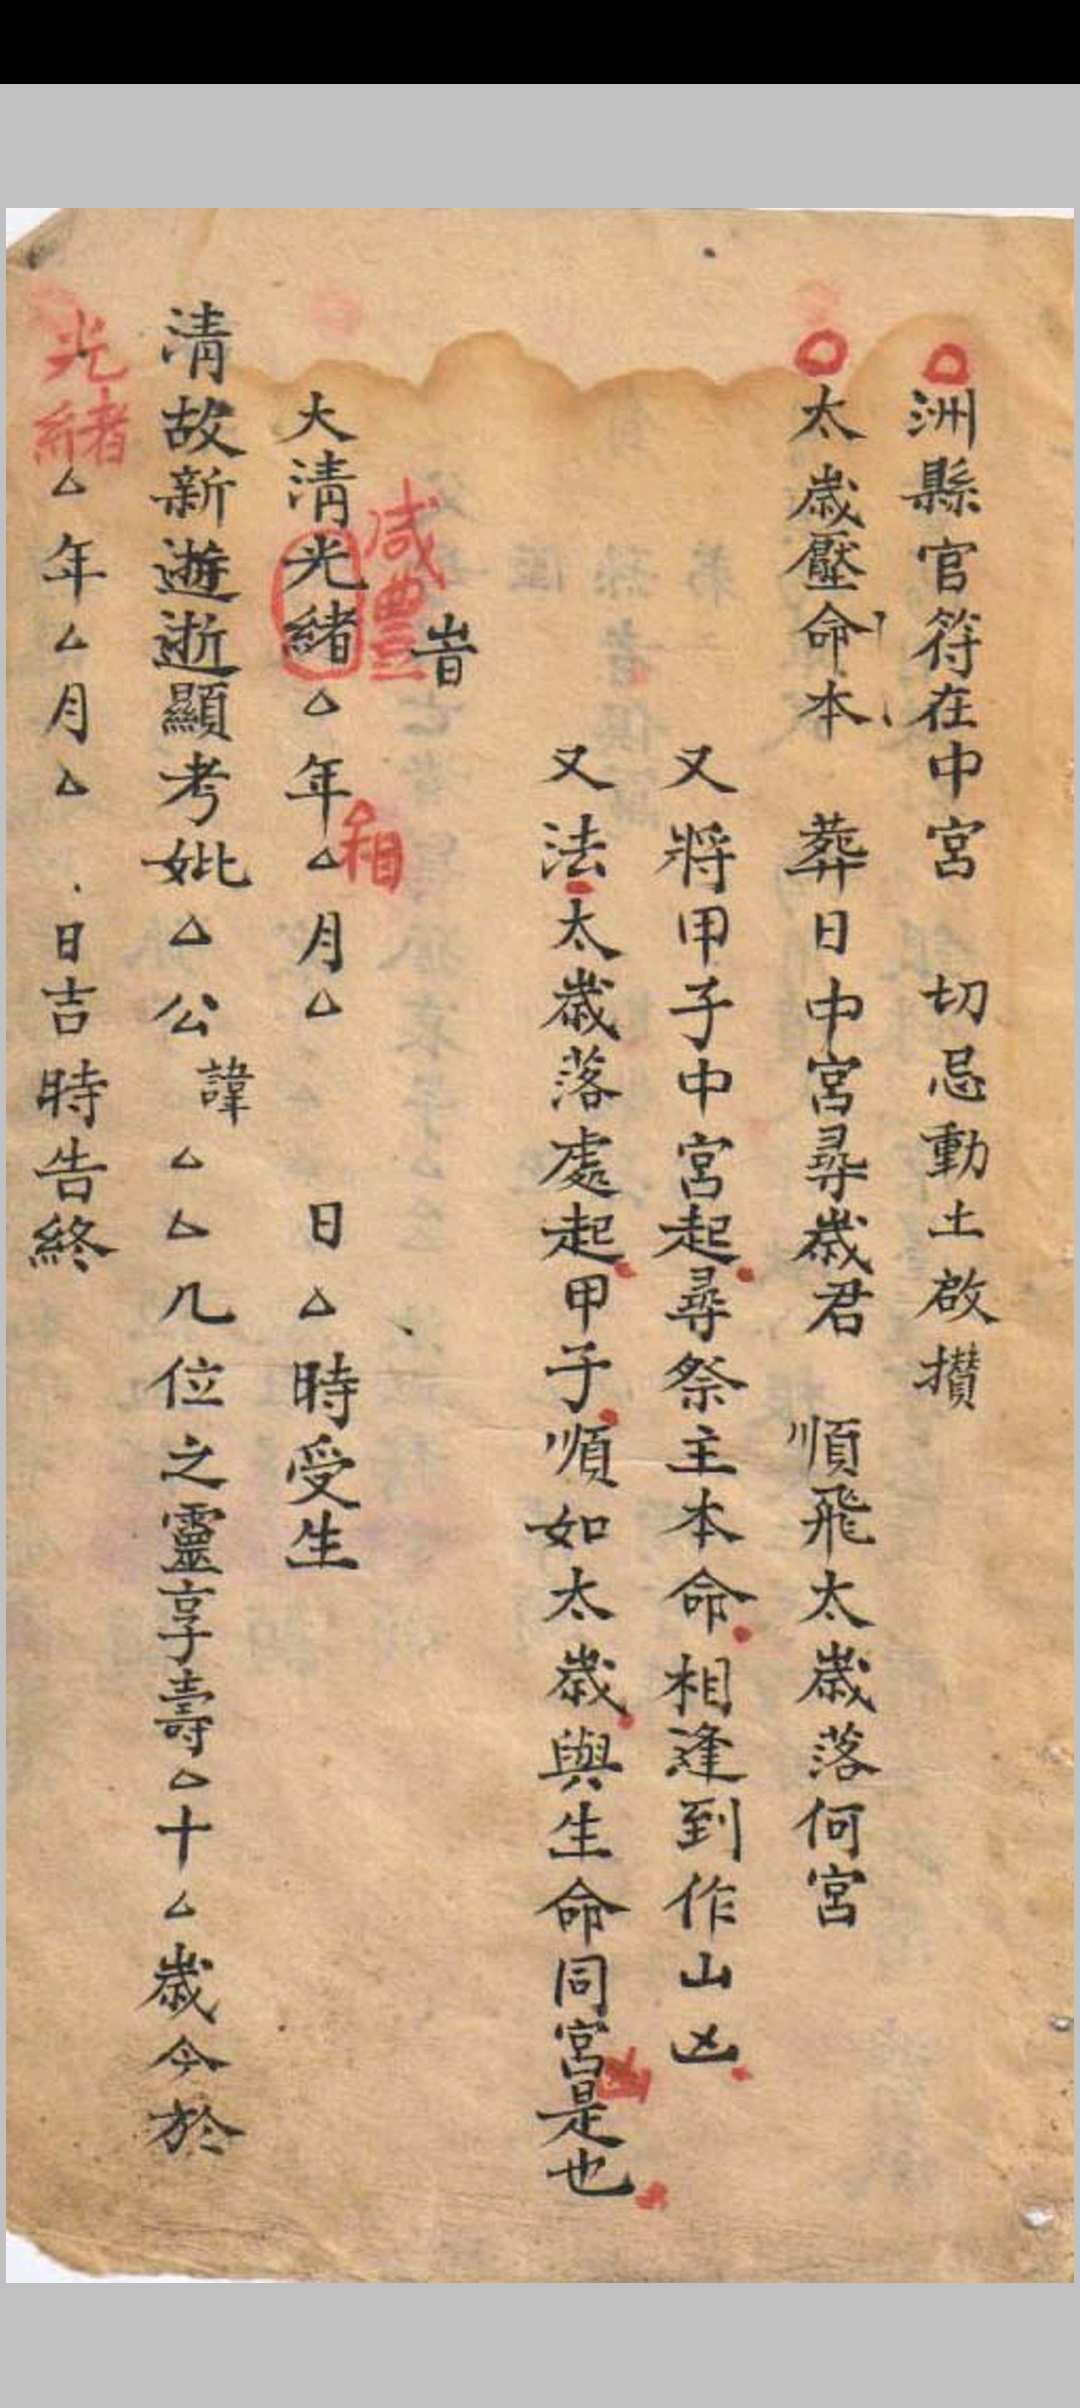 洲縣官符在中宮　切忌動土啟攢
太歲壓命本　葬日中宮尋歲君　順飛太歲落何宮
又將甲子中宮起尋祭主本命相逢到作山凶
又法太歲落處起甲子順如太歲與生命同宮是也
凶
咸豐
大清光緒△年△月△　日△時受生
清故新遊逝顯考妣△公諱△△几位之靈享壽△十△歲今於
光緒△年△月△日吉時告終